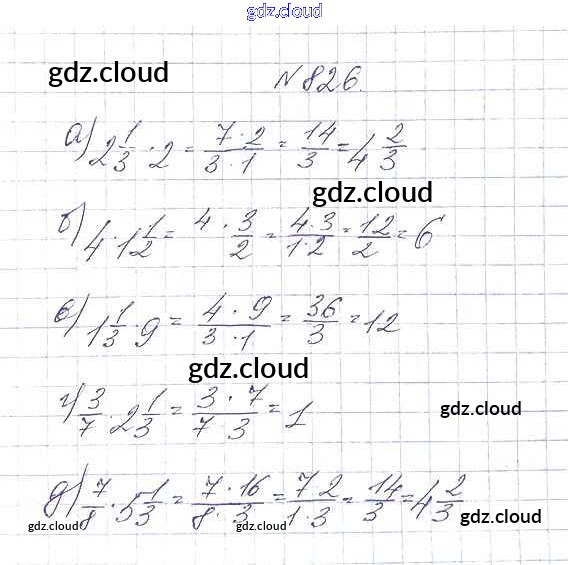 gdz.cloud
gdz.cloud
№ 826.
а) 2 1/3 · 2 = 7 · 2 / 3 · 1 = 14/3 = 4 2/3
gdz.cloud
б) 4 · 1 1/2 = 4 · 3/2 = 4 · 3 / 1 · 2 = 12/2 = 6
в) 1 1/3 · 9 = 4 · 9 / 3 · 1 = 36/3 = 12
gdz.cloud
г) 3/7 · 2 1/3 = 3 · 7 / 7 3 = 1
gdz.cloud
д) 7/8 · 5 1/3 = 7 · 16 / 8 · 3 = 7 2 / 1 · 3 = 14/3 = 4 2/3
gdz.cloud
gdz.cloud
gdz.cloud
gdz.cloud